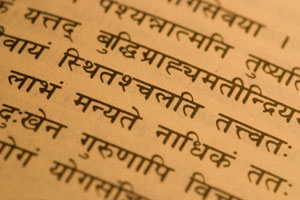 गसेवया ।
पश्यन्नात्मनि तुष्यति
यत्तद् बुद्धिग्राह्यमतीन्द्रिय
वायं स्थितश्चलति तत्त्वतः
लाभं मन्यते नाधिकं ततः
दुःखेन गुरुणापि
योगं